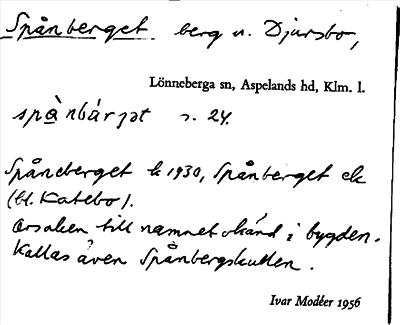 Spånberget berg n. Djursbo,
Lönneberga sn, Aspelands hd, Klm. l.
spånbárjət s. 24.
Spåneberget k 1930, Spånberget ek
(bl. Katebo).
Orsaken till namnet okänd i bygden.
Kallas även Spånbergskullen.
Ivar Modéer 1956